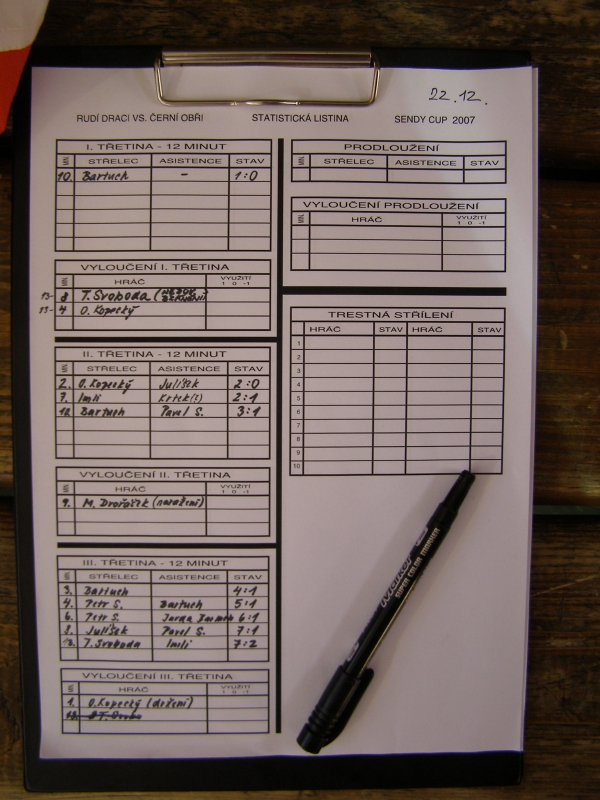 22.12.
RUDÍ DRACI VS. ČERNÍ OBŘI STATISTICKÁ LISTINA SENDY CUP 2007
I. TŘETINA - 12 MINUT
MIN. STŘELEC ASISTENCE STAV
10. Bartuch - 1:0
VYLOUČENÍ I. TŘETINA
MIN. HRÁČ VYUŽITÍ
1 0 -1
13- 8 T. Svoboda
13- 4 O. Kopecký
II. TŘETINA - 12 MINUT
MIN. STŘELEC ASISTENCE STAV
2. O. Kopecký Julíšek 2:0
7. Imli Krtek(s) 2:1
12. Bartuch Pavel S. 3:1
VYLOUČENÍ II. TŘETINA
MIN. HRÁČ VYUŽITÍ
1 0 -1
9. M. Dvořáček (naražení)
III. TŘETINA - 12 MINUT
MIN. STŘELEC ASISTENCE STAV
3. Bartuch 4:1
4. Petr S. Bartuch 5:1
6. Petr S. Jarda 6:1
8. Julíšek Pavel S. 7:1
12. T. Svoboda Imli 7:2
VYLOUČENÍ III. TŘETINA
MIN. HRÁČ VYUŽITÍ
1 0 -1
1. O. Kopecký (držení)
PRODLOUŽENÍ
MIN. STŘELEC ASISTENCE STAV
VYLOUČENÍ PRODLOUŽENÍ
MIN. HRÁČ VYUŽITÍ
1 0 -1
TRESTNÁ STŘÍLENÍ
HRÁČ STAV HRÁČ STAV
1
2
3
4
5
6
7
8
9
10
Marker
SUPER COLOR MARKER